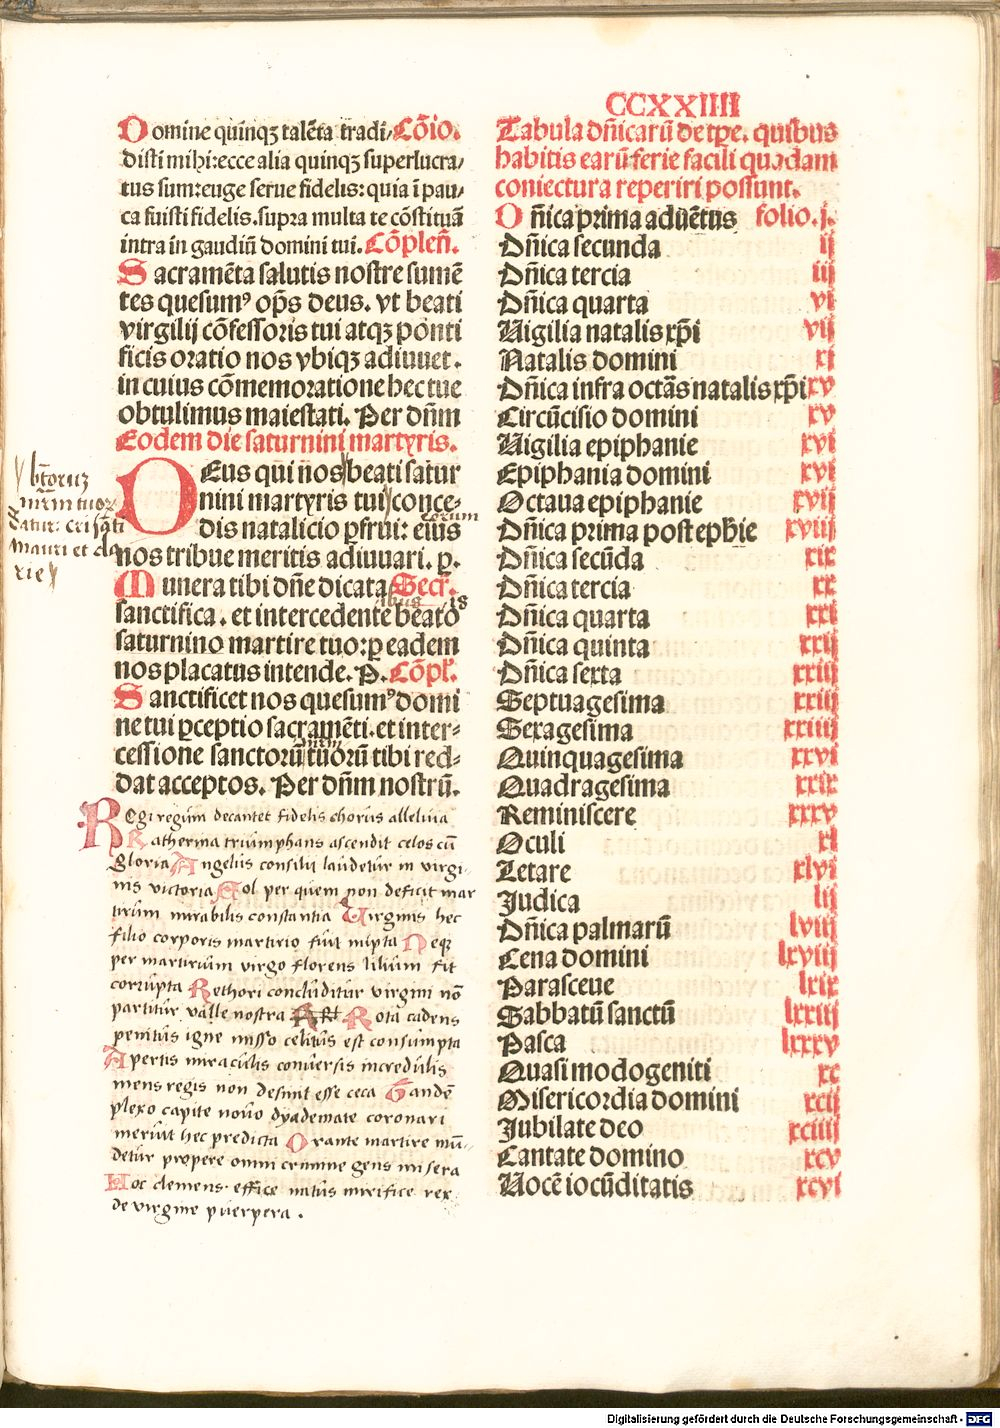 CCXXIIII
Domine quinqȝ talēta tradi⸗ Cōio.
disti mihi: ecce alia quinqȝ superlucra⸗
tus sum: euge serue fidelis: quia ī pau⸗
ca fuisti fidelis. supra multa te cōstituā
intra in gaudiū domini tui. Cōpleñ.
Sacramēta salutis nostre sumē
tes quesumꝰ op̄s deus. vt beati
virgilij cōfessoris tui atqȝ ponti
ficis oratio nos vbiqȝ adiuuet.
in cuius cōmemoratione hec tue
obtulimus maiestati. Per dñm
Eodem die saturnini martyris.
Deus qui nos beati satur
nini martyris tui conce⸗
dis natalicio ꝑfrui: eius
eorum
nos tribue meritis adiuuari. p.
btōruȝ
mr̄m tuoꝝ
satur: crisāti
mauri et da
rie
Munera tibi dñe dicata Secr̄.
ibus is
sanctifica. et intercedente beato
saturnino martire tuo: ꝑ eadem
nos placatus intende. P. Cōpl̄.
Sanctificet nos quesumꝰ domi
ne tui ꝑceptio sacramēti. et inter⸗
cessione sanctorū tuorū tibi red⸗
dat acceptos. Per dñm nostrū.
Regi regum decantet fidelis chorus alleluia
Katherina triumphans ascendit celos cū
gloria Angelus consilii laudetur in virgi⸗
nis victoria Sol per quem non deficit mar
tirum mirabilis constantia Virginis hec
filio corporis martirio fuit nupta Neqȝ
per martirium virgo florens lilium fit
corrupta Rethori concluditur virgini nō
partitur valle nostra Rota cadens
penitus igne misso celitus est consumpta
Apertis miraculis conuersis incredulis
mens regis non desinit esse ceca Gandē
plexo capite nouo dyademate coronari
meruit hec predicta Orante martire mū⸗
detur propere omni crimine gens misera
Hoc clemens effice natus mirifice rex
de virgine puerpera.
Tabula dñicarū de tꝑe. quibus
habitis earū ferie facili quadam
coniectura reperiri possunt.
Dñica prima aduētus folio. j.
Dñica secunda ij
Dñica tercia iij
Dñica quarta vi
Uigilia natalis xp̄i vij
Natalis domini xi
Dñica infra octās natalis xp̄i xv
Circūcisio domini xv
Uigilia epiphanie xvi
Epiphania domini xvi
Octaua epiphanie xvij
Dñica prima post ephīe xviij
Dñica secūda xix
Dñica tercia xx
Dñica quarta xxi
Dñica quinta xxij
Dñica sexta xxiij
Septuagesima xxiij
Sexagesima xxiiij
Quinquagesima xxvi
Quadragesima xxix
Reminiscere xxxv
Oculi xl
Letare xlvi
Judica lij
Dñica palmarū lviij
Cena domini lxviij
Parasceue lxix
Sabbatū sanctū lxxiij
Pasca lxxxv
Quasi modogeniti xc
Misericordia domini xcij
Jubilate deo xciiij
Cantate domino xcv
Uocē iocūditatis xcvi
Digitalisierung gefördert durch die Deutsche Forschungsgemeinschaft - DFG